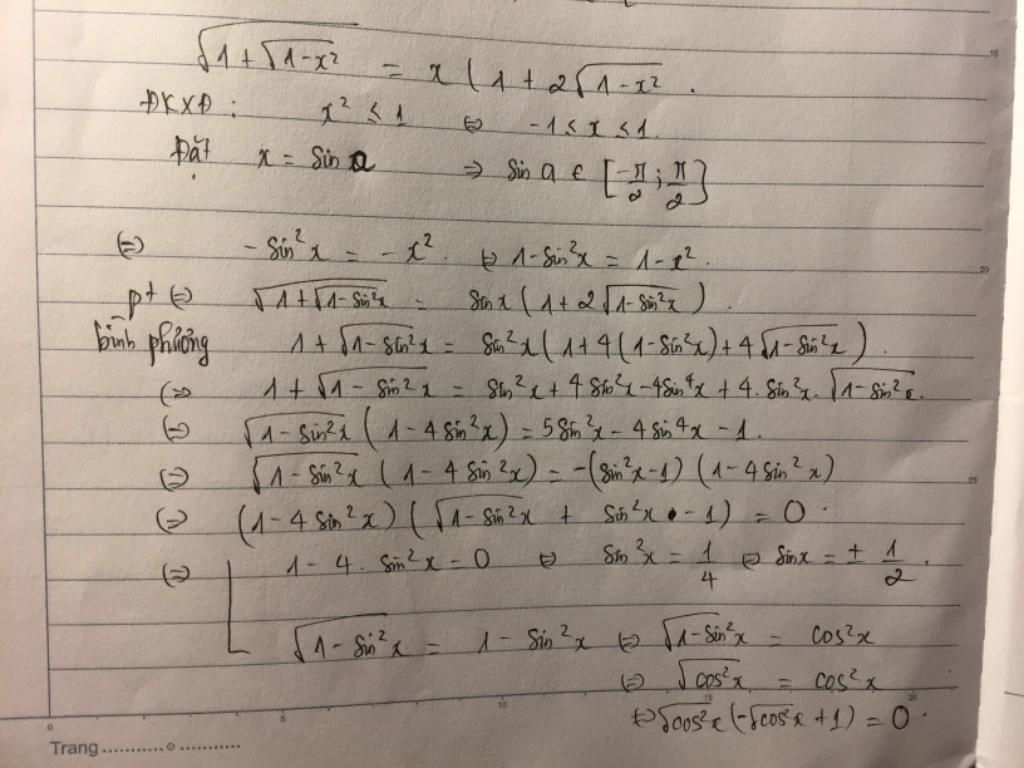 √(1+√(1-x²)) = x(1+2√(1-x²).
ĐKXĐ: x² ≤ 1 ⇔ -1 ≤ x ≤ 1.
Đặt x = sin a ⇒ sin a ∈ [-π/2; π/2]
⇔ -sin²x = -x². ⇔ 1-sin²x = 1-x².
pt ⇔ √(1+√(1-sin²x)) = sinx(1+2√(1-sin²x)).
bình phương 1+√(1-sin²x) = sin²x(1+4(1-sin²x)+4√(1-sin²x)).
⇔ 1+√(1-sin²x) = sin²x+4sin²x-4sin⁴x+4.sin²x.√(1-sin²x.
⇔ √(1-sin²x)(1-4sin²x) = 5sin²x-4sin⁴x-1.
⇔ √(1-sin²x)(1-4sin²x) = -(sin²x-1)(1-4sin²x)
⇔ (1-4sin²x)(√(1-sin²x)+sin²x-1) = 0.
⇔ [ 1-4.sin²x = 0 ⇔ sin²x = 1/4 ⇔ sinx = ± 1/2.
√(1-sin²x) = 1-sin²x ⇔ √(1-sin²x) = cos²x
⇔ √(cos²x) = cos²x
⇔ √(cos²x)(-√(cos²x)+1) = 0.
15
20
25
0 5 10 15 20
Trang..........o..........